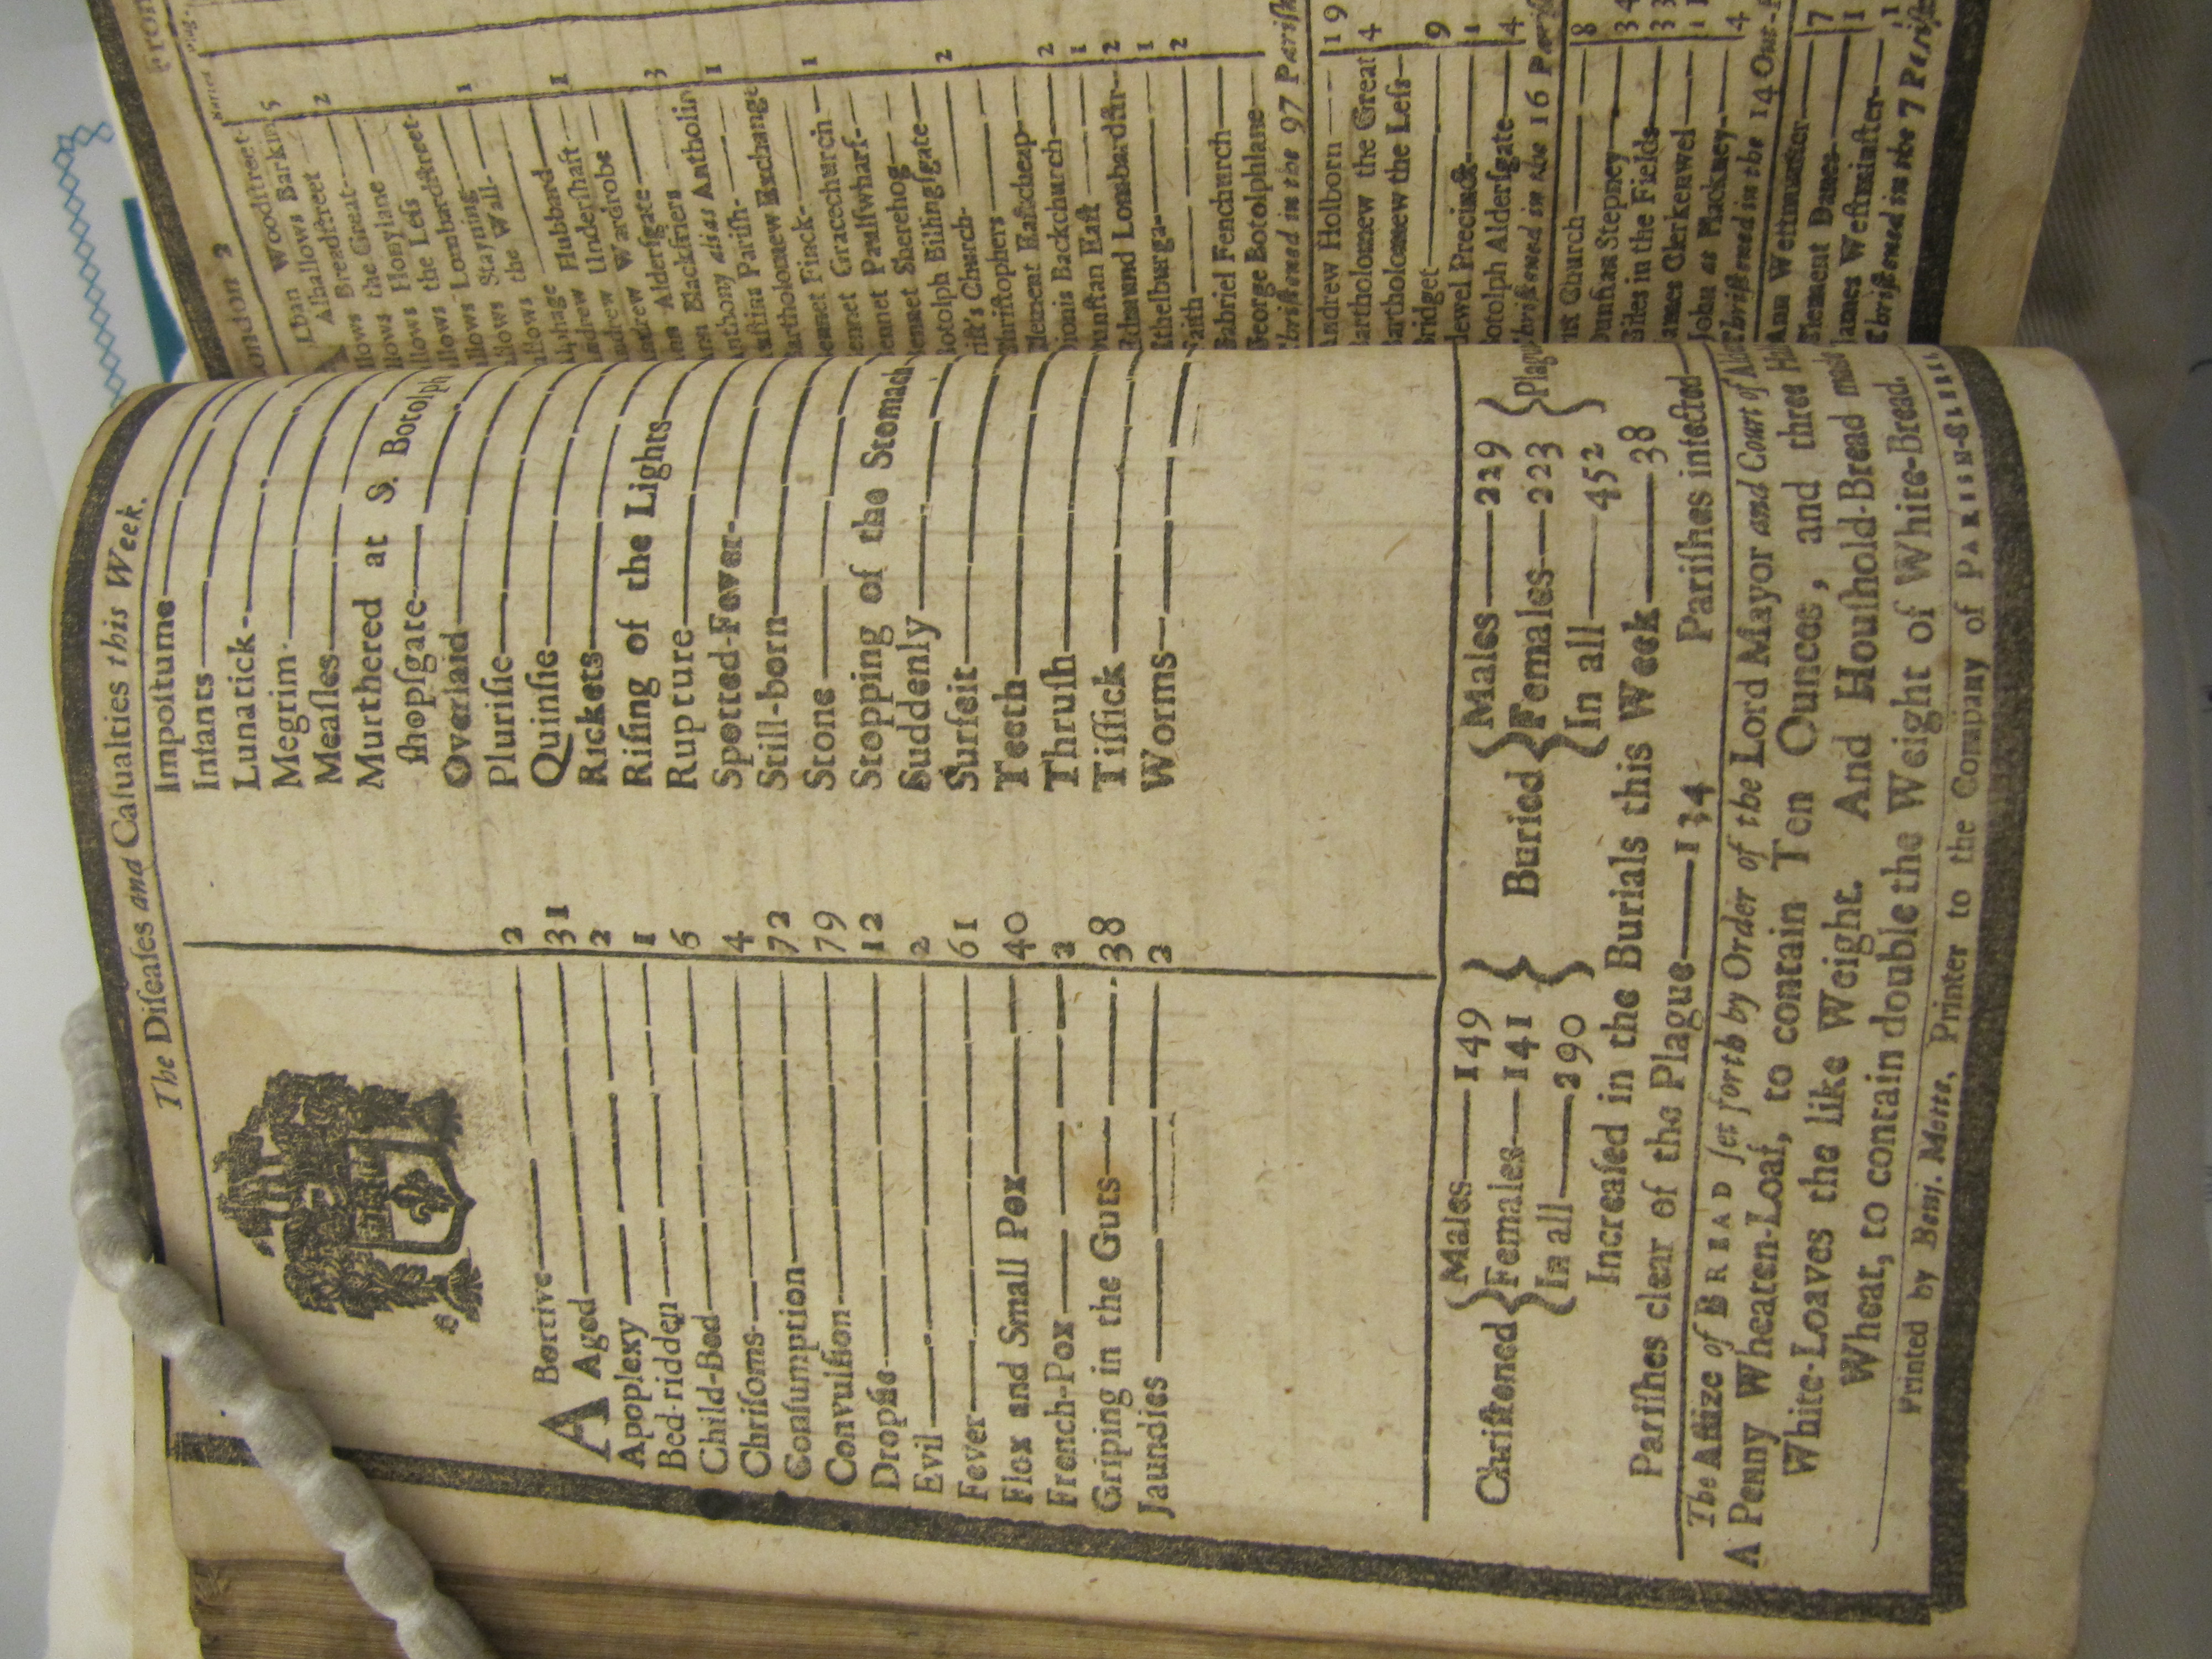 The Diſeaſes and Caſualties this Week.
Abortive 2
Aged 31
Apoplexy 2
Bed-ridden 1
Child-Bed 6
Chriſoms 4
Conſumption 72
Convulſion 79
Dropſie 12
Evil 2
Fever 61
Flox and Small Pox 40
French-Pox 2
Griping in the Guts 38
Jaundies 2
Impoſtume
Infants
Lunatick
Megrim
Meaſles
Murthered at S. Botolph
ſhopſgate
Overlaid
Pluriſie
Quinſie
Rickets
Riſing of the Lights
Rupture
Spotted-Fever
Still-born
Stone
Stopping of the Stomach
Suddenly
Surfeit
Teeth
Thruſh
Tiſſick
Worms
Chriſtened { Males 149 Females 141 In all 290 }
Buried { Males 229 Females 223 In all 452 } Plag
Increaſed in the Burials this Week 38
Pariſhes clear of the Plague 134 Pariſhes infected
The Aſſize of BREAD ſet forth by Order of the Lord Mayor and Court of
A Penny Wheaten-Loaf, to contain Ten Ounces, and three
White-Loaves the like Weight. And Houſhold-Bread made
Wheat, to contain double the Weight of White-Bread.
Printed by Benj. Motte, Printer to the Company of PARISH-CLERKS
London 2
Woodſtreet
Alhallows Barking 5
Alhallows Breadſtreet 2
llows the Great
llows Honylane
llows the Leſs
llows Lombardſtreet
llows Stayning 1
llows the Wall
Alphage
ndrew Hubbard 1
ndrew Underſhaft
ndrew Wardrobe 3
Alderſgate
Blackfriers 1
Antholin
Pariſh
artholomew Exchange 1
ennet Finck
ennet Gracechurch
ennet Paulſwharf
ennet Sherehog
otolph Billingſgate 2
Church
hriſtophers
lement Eaſtcheap 2
ionis Backchurch 1
unſtan Eaſt 2
dmund Lombardſtr 1
thelburga 2
aith
abriel Fenchurch
George Botolphlane
Chriſtened in the 97 Pariſh
Andrew Holborn 19
artholomew the Great 4
artholomew the Leſs
ridget 9
dewel Precinct 1
otolph Alderſgate 4
Chriſtened in the 16 Pariſ
Church 8
unſtan Stepney 34
Giles in the Fields 33
ames Clerkenwel
John at Hackney 4
Chriſtened in the 14 Out-
Ann Weſtminſter 7
lement Danes 1
James Weſtminſter
Chriſtened in the 7 Pariſh